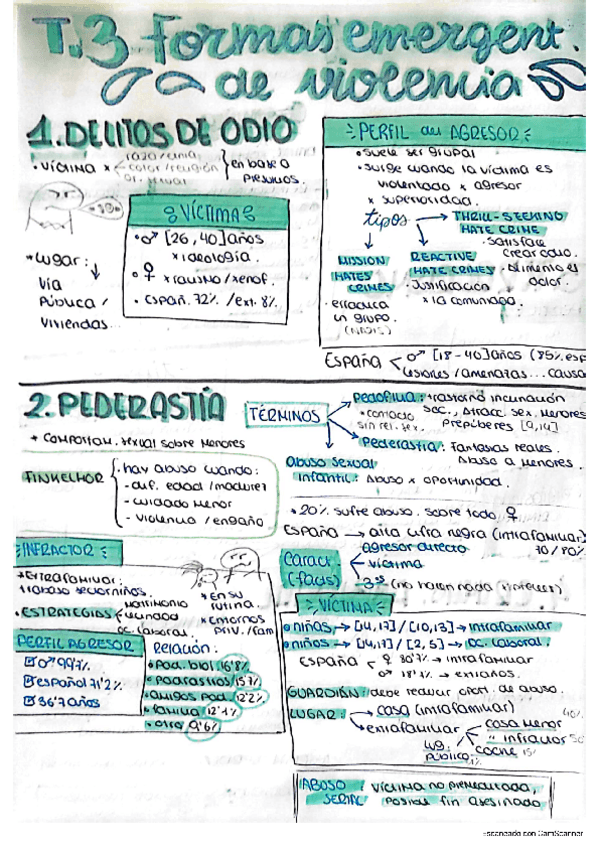 T.3 formas emergent.
de violencia
1. DELITOS DE ODIO
• VÍCTIMA x raza/etnia
color/religión
or. sexual
en base a
prejuicios.
VÍCTIMA
• ♂ [26, 40] años
x ideología.
• ♀
x racismo/xenof.
• Españ. 72% /ext. 8%.
* LUGAR:
Vía
Pública /
Viviendas...
PERFIL del AGRESOR
• suele ser grupal
• surge cuando la víctima es
violentada x agresor
x superioridad.
tipos
THRILL-SEEKING
HATE CRIME
• Satisface
crear odio.
• Alimento es
dolor.
MISSION
HATES
CRIMES
erradica
un grupo.
(NAZIS)
REACTIVE
HATE CRIMES
• Justificación
x la comunidad.
ESPAÑA ♂ [18-40] años (85% esp
lesiones / amenazas... causa
2. PEDERASTÍA
* Comportam. sexual sobre menores
TÉRMINOS
Pedofilia: trastorno inclinación
sex., Atracc. sex. menores
Prepúberes [0,14]
• contacto
sin rel. sex.
Pederastia: Fantasías reales.
Abuso a menores.
Abuso Sexual
Infantil: Abuso x oportunidad.
FINKELHOR
• hay abuso cuando:
- dif. edad/madurez
- cuidado menor
- violencia / engaño
• 20% sufre abuso. Sobre todo ♀
ESPAÑA → alta cifra negra (intrafamiliar)
70/80%
Caract.
(facis)
agresor directo
víctima
3ºs (no hacen nada
INFRACTOR
* EXTRAFAMILIAR:
trabaso
• ESTRATEGIAS
matrimonio
oc. laboral.
* en su
rutina
* entornos
priv. / fam
PERFIL AGRESOR
♂ 99'7%
español 71'2%
36'7 años
Relación:
• Pad. biol 16'8%
• Padrastros 15'7%
• Amigos Pad. 12'2%
• familia 12'1%
• otra 9'6%
VÍCTIMA
• niñas → [14,17] / [10,13] → intrafamiliar
• niños → [14,17] / [2, 5] → oc. laboral.
ESPAÑA ♀ 80'7% → intrafamiliar
♂ 18'1% → extraños.
GUARDIÁN: debe reducir oport. de abuso.
LUGAR: casa (intrafamiliar)
extrafamiliar
casa menor
" infractor
coche
lug.
público
ABUSO
SERIAL:
víctima no premeditada,
posible fin asesinada
Escaneado con CamScanner